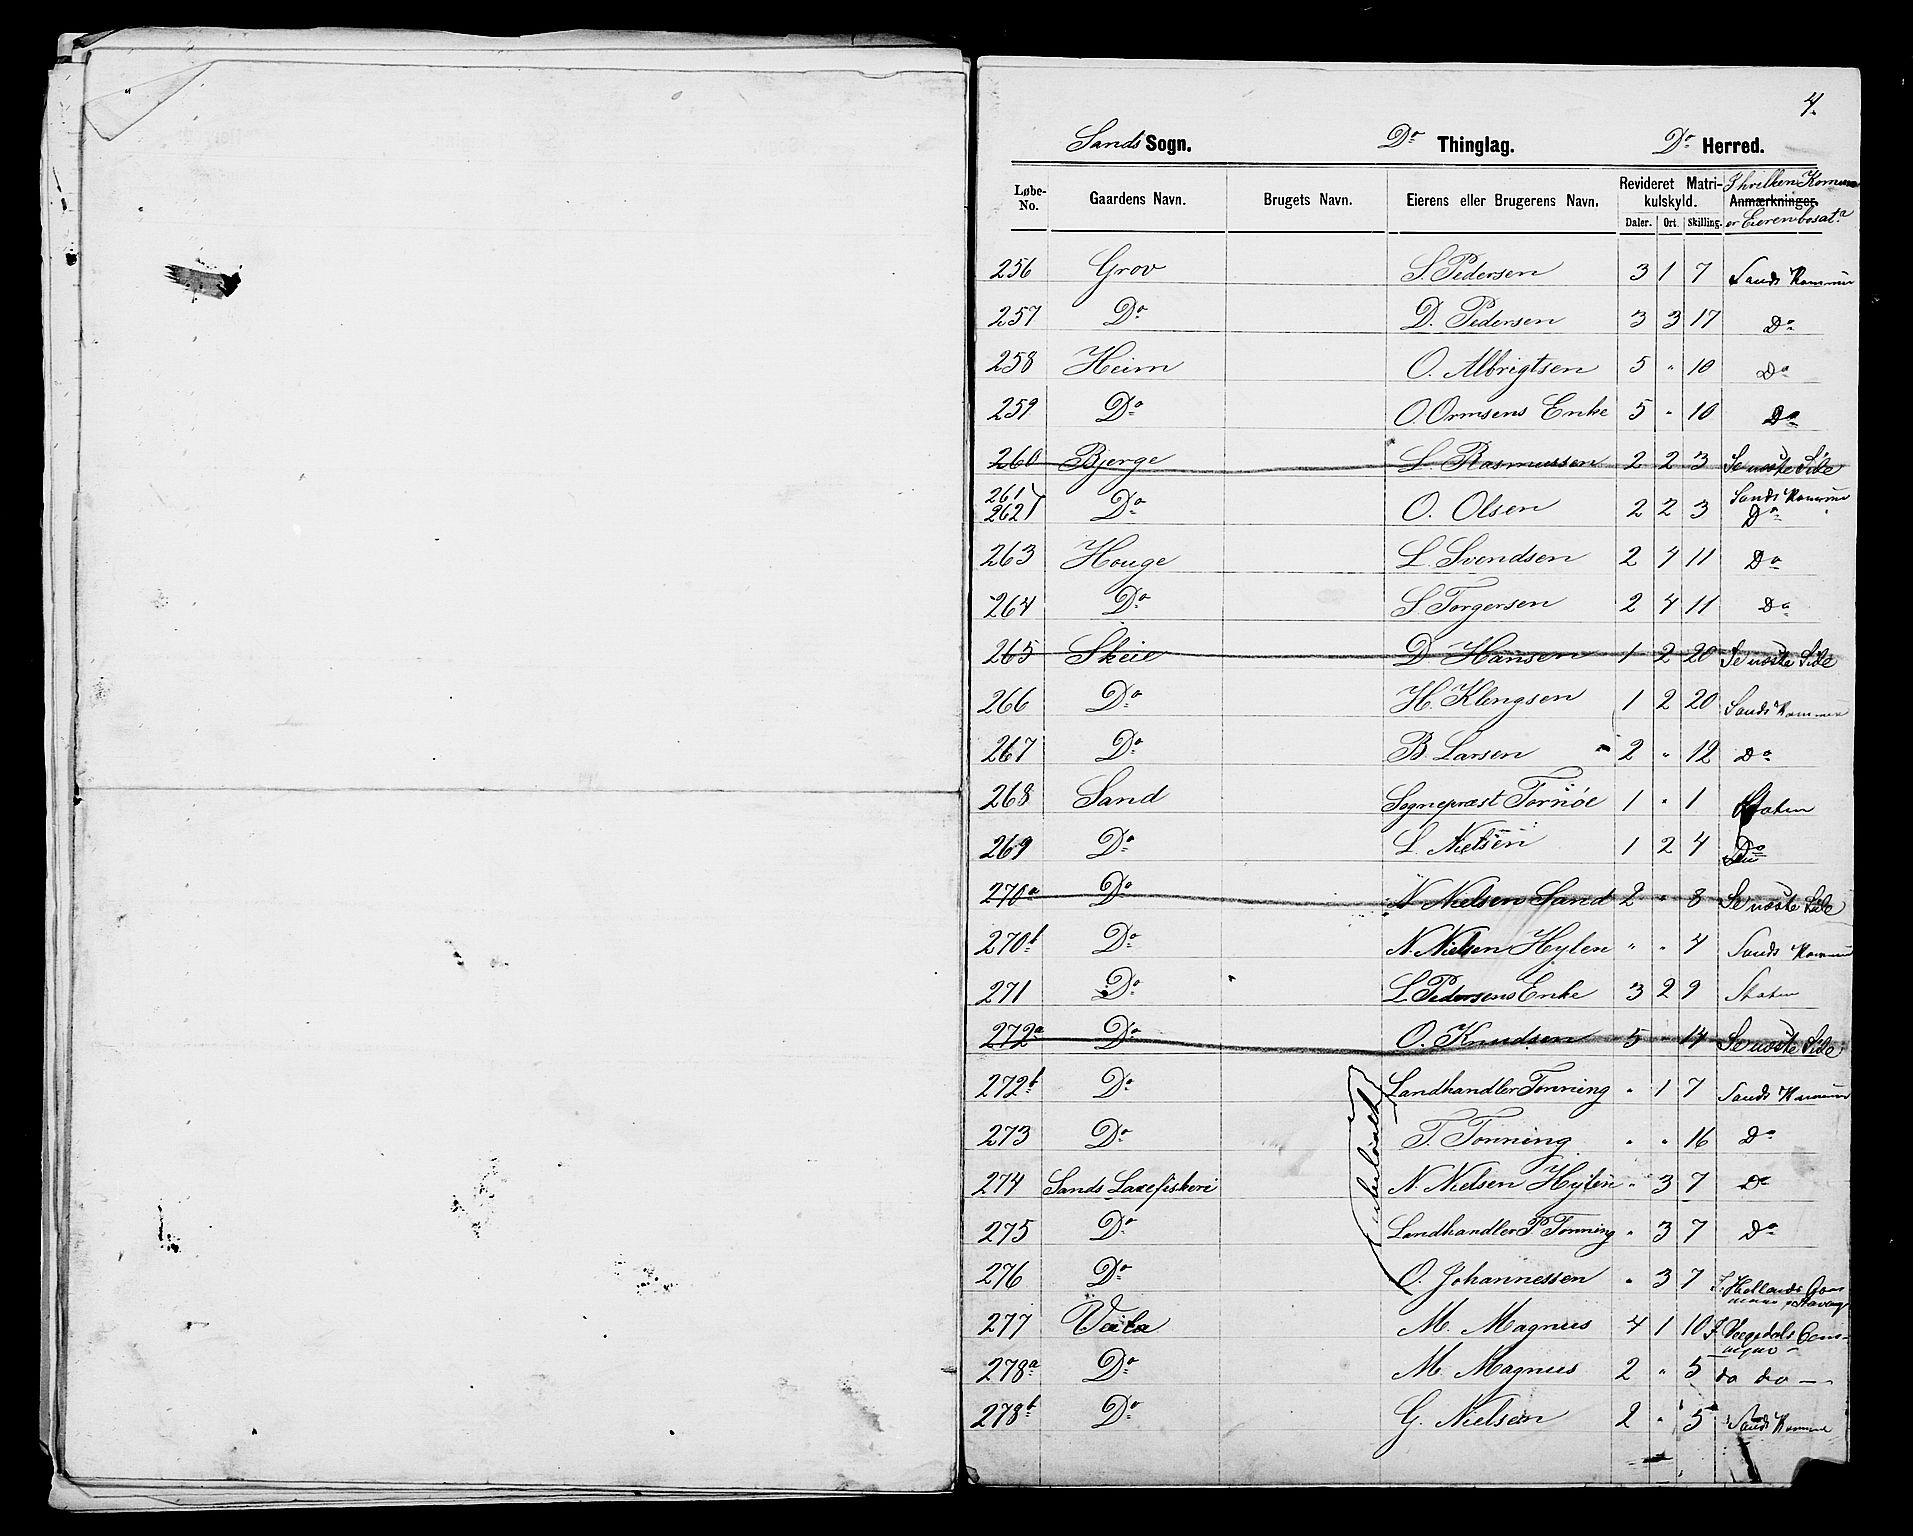 4.
Sands Sogn. Do Thinglag. Do Herred.
Løbe-No. Gaardens Navn. Brugets Navn. Eierens eller Brugerens Navn. Revideret Matrikulskyld. Daler. Ort. Skilling. Anmærkninger. I hvilken Komune er Eieren bosat?
256 Grov S. Pedersen 3 1 7 Sands Kommune
257 Do D. Pedersen 3 3 17 Do
258 Heim O. Albrigtsen 5 " 10 Do
259 Do O. Ormsens Enke 5 " 10 Do
260 Bjerge L. Rasmussen 2 2 3 Se næste Side
261 262 Do O. Olsen 2 2 3 Sands Kommune Do
263 Houge L. Svendsen 2 4 11 Do
264 Do S. Torgersen 2 4 11 Do
265 Skeie D Hansen 1 2 20 Se næste Side
266 Do H. Klengsen 1 2 20 Sands Kommune
267 Do B. Larsen 2 " 12 Do
268 Sand Sognepræst Tornöe 1 " 1 Staten
269 Do L. Nielsen 1 2 4 Do
270a Do N Nielsen Sand 2 " 8 Se næste Side
270b Do N. Nielsen Hylen " " 4 Sands Kommune
271 Do L Pedersens Enke 3 2 9 Staten
272a Do O. Knudsen 5 " 14 Se næste Side
272b Do Landhandler Tonning " 1 7 Sands Kommune
273 Do T. Tonning " " 16 Do
274 Sands Laxefiskeri N. Nielsen Hylen " 3 7 Do
275 Do Landhandler P. Tonning " 3 7 Do
276 Do O. Johannessen " 3 7 Hetlands
277 Vaila M. Magnus 4 1 10
278a Do M. Magnus 2 " 5 do do
278b Do G. Nielsen 2 " 5 Sands Kommune